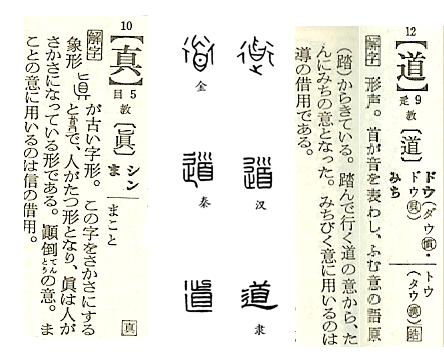 12
【道】
辵9
教
〔道〕
ドウ(ダウ)
トウ(タウ)
みち
解字 形声。首が音を表わし、ふむ意の語原
(踏)からきている。踏んで行く道の意から、た
んにみちの意となった。みちびく意に用いるのは
導の借用である。
汉
隶
金
秦
10
【真】
目5
教
〔眞〕
シン
ま
まこと
解字
象形
が古い字形。この字をさかさにする
とで、人がたつ形となり、眞は人が
さかさになっている形である。顛倒の意。ま
てんとう
ことの意に用いるのは信の借用。
真